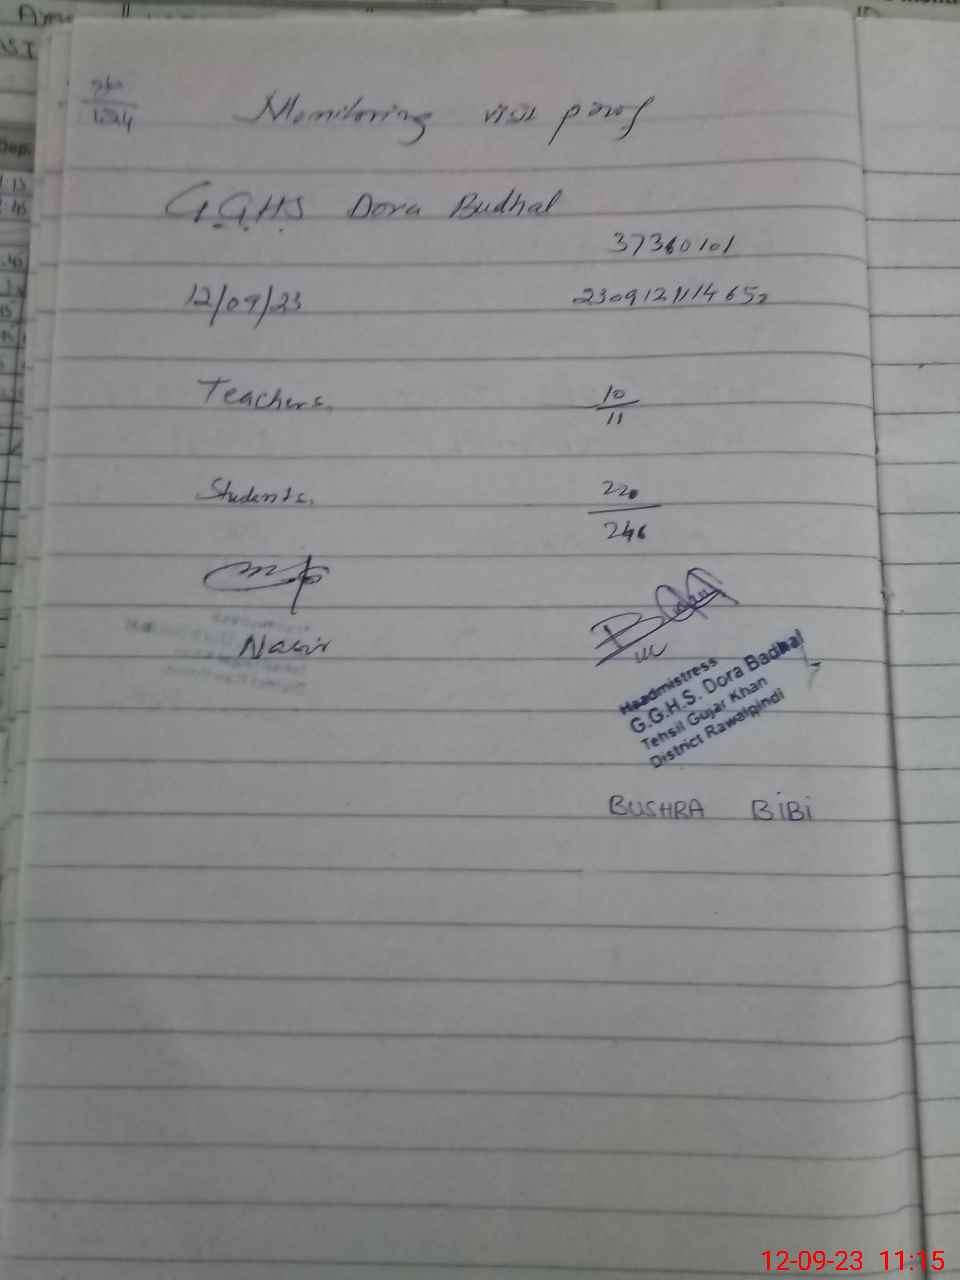 Monitoring visit proof
G.G.H.S Dora Budhal
37360101
12/09/23 2309121114652
Teachers. 10/11
Students. 220/246
Nasir
Headmistress
G.G.H.S. Dora Badhal
Tehsil Gujar Khan
District Rawalpindi
BUSHRA BiBi
12-09-23 11:15